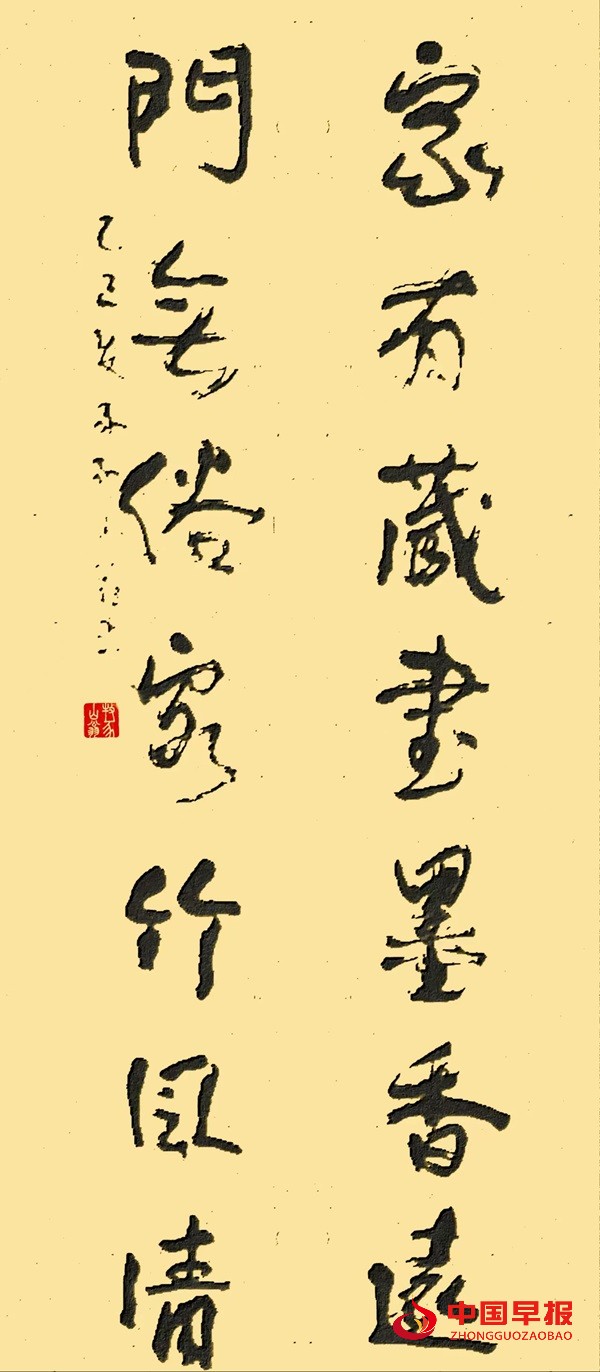 家有藏書墨香遠
門無俗客竹風清
中国早报
ZHONGGUOZAOBAO